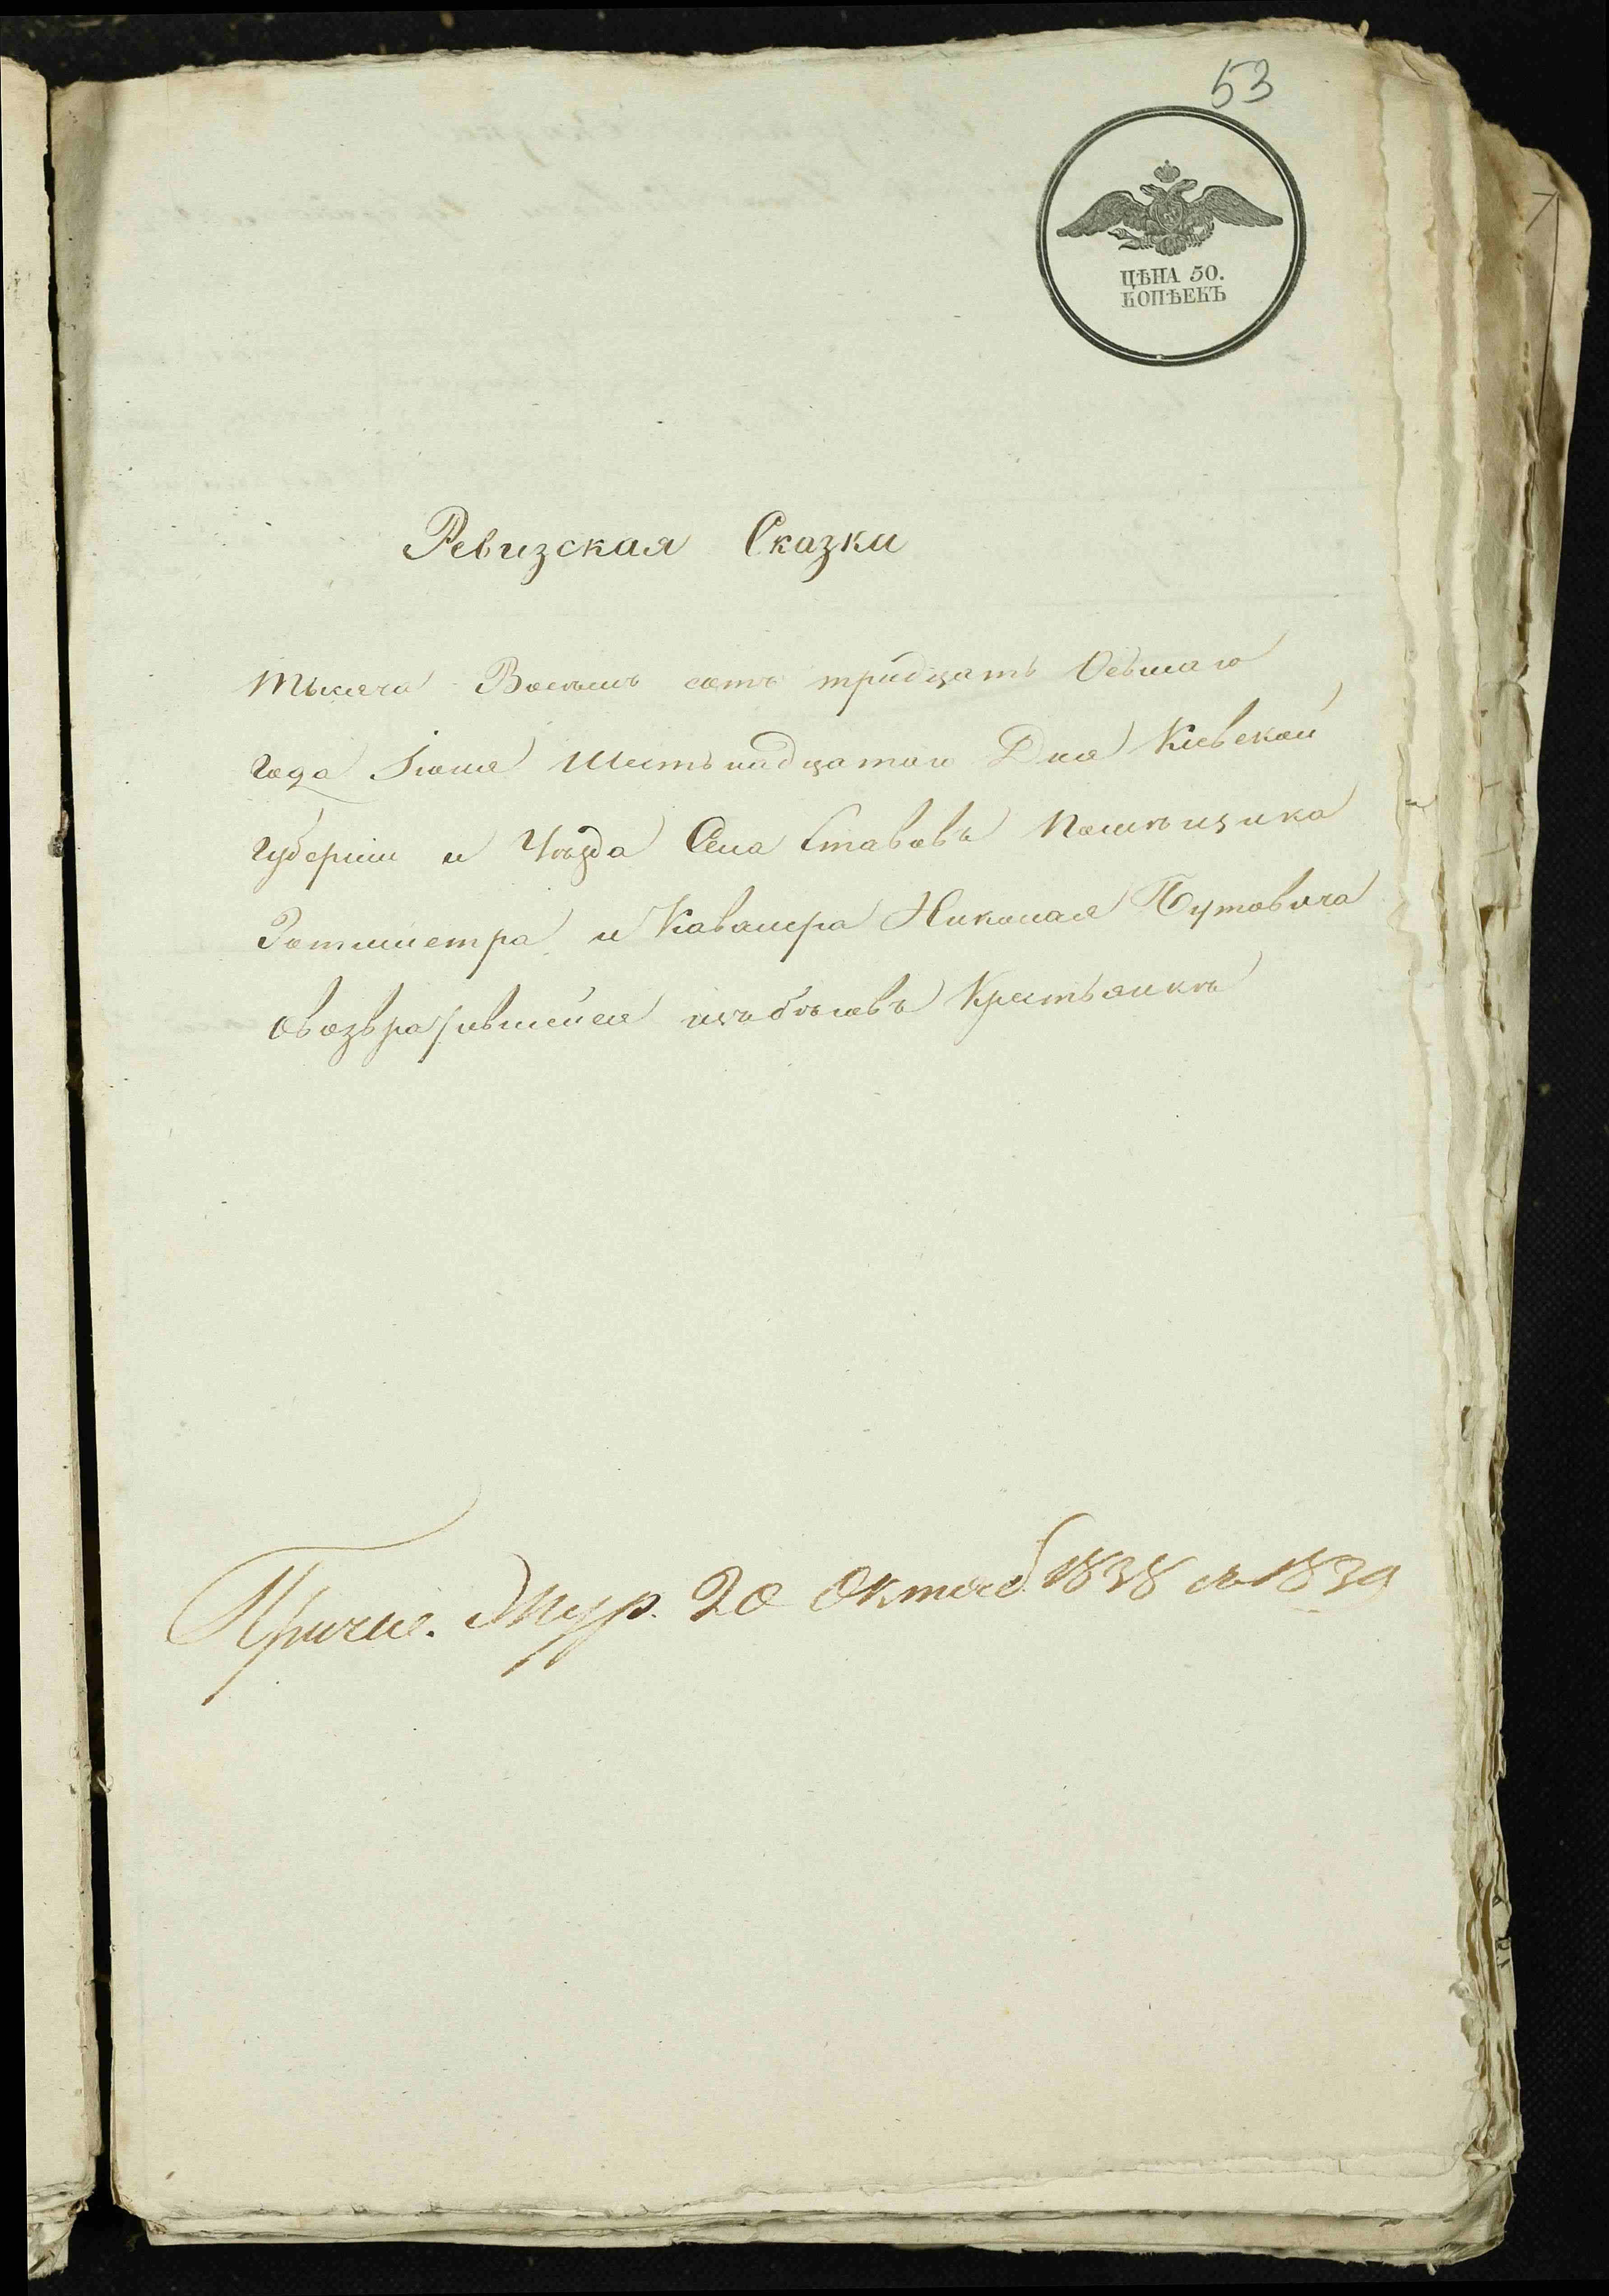 53
ЦѢНА 50.
КОПѢЕКЪ
Ревизская Сказки
тысяча Восемь сотъ тридцать Осьмаго
года Іюня Шестьнадцатого Дня Кіевской
губерніи и Уѣзда Села Ставовъ Помѣщика
Ротмистра и Кавалера Николая Бутовича
овозвратившейся изъ бѣговъ Крестьянкѣ
Причис. Жур. 20 Октяб. 1838 съ 1839